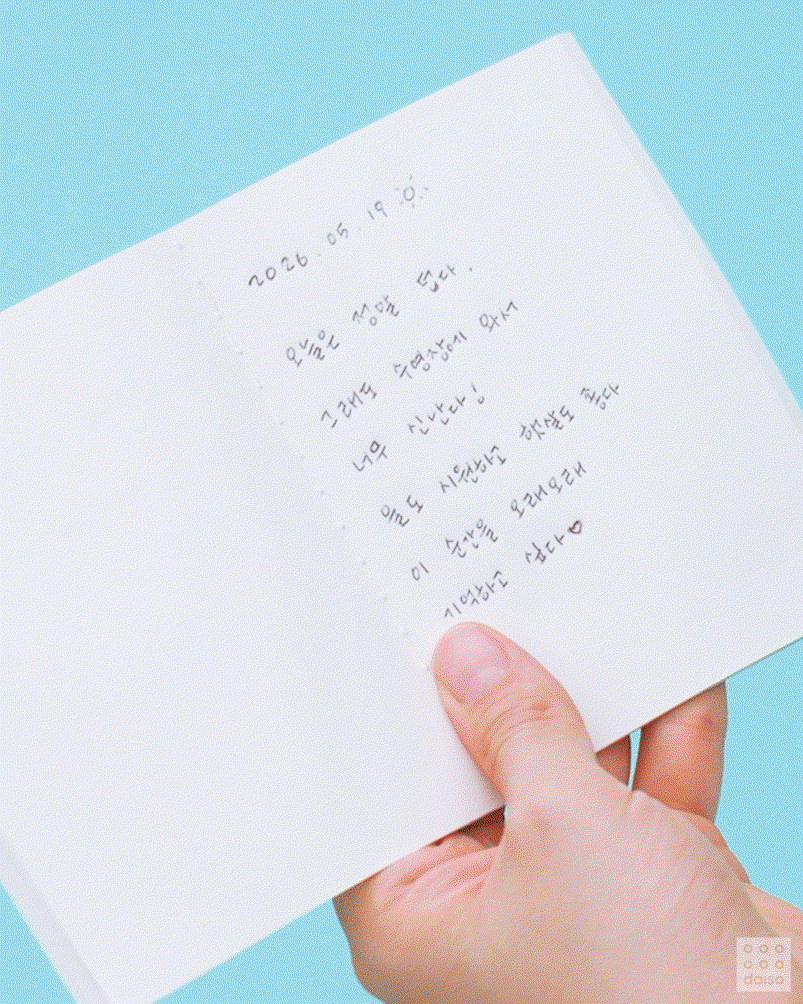 2026.05.19
오늘은 정말 덥다.
그래도 수영장에 와서
너무 신난다!
물도 시원하고 햇살도 좋다
이 순간을 오래오래
기억하고 싶다♡
daiso